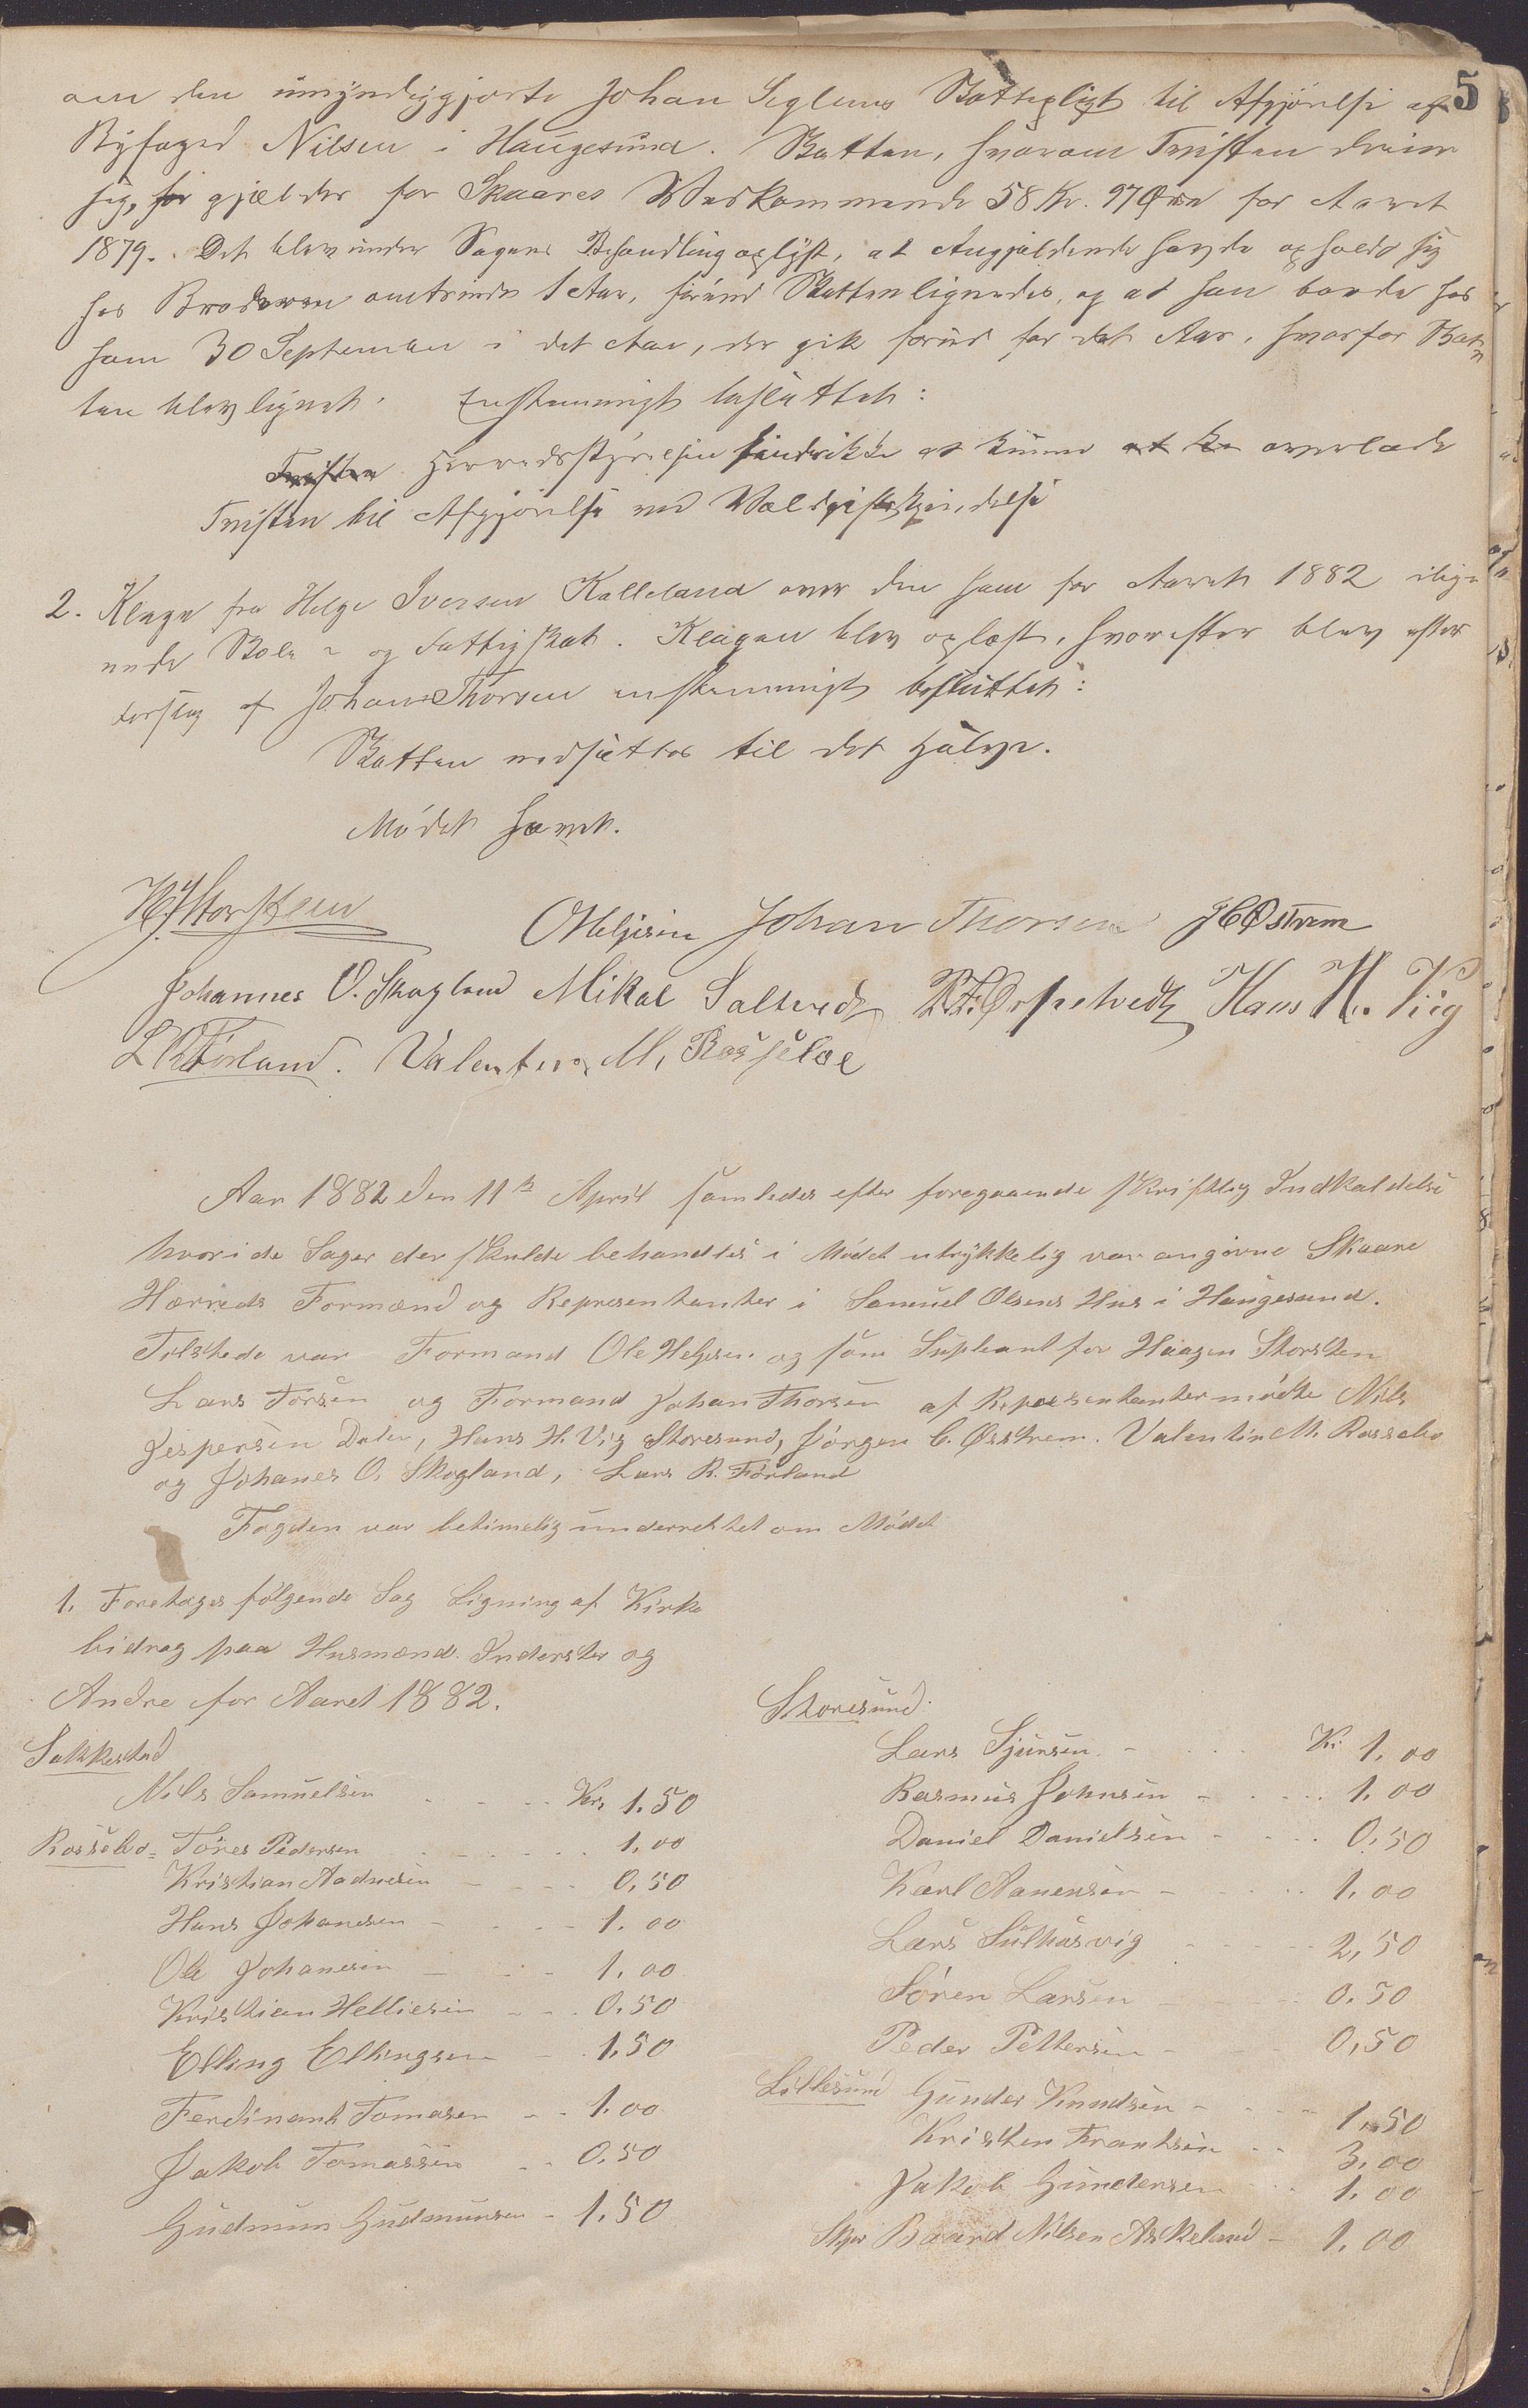 5
om den umyndiggjorte Johan Seglems Skattepligt til Afgjørelse af
Byfoged Nilsen i Haugesund. Skatten, hvorom Tvisten dreier
sig, gjælder for Skaares Vedkommende 58 Kr. 97 Øre for Aaret
1879. Det blev under Sagens Behandling oplyst, at Angjældende havde opholdt sig
hos Broderen omtrindt 1 Aar, førend Skatten lignedes, og at han boede hos
ham 30 September i det Aar, der gik forud for det Aar, hvorfor Skat-
ten blev lignet. Enstemmigt besluttet:
Tvisten Herredsstyrelsen finder ikke at kunne at overlade
Tvisten til Afgjørelse ved Voldgiftskjendelse
2. Klage fra Helge Iversen Kalleland over den ham for Aaret 1882 ilig-
nede Skole- og Fattigskat. Klagen blev oplæst, hvorefter blev efter
Forslag af Johan Thorsen enstemmigt besluttet:
Skatten nedsættes til det Halve.
Mødet hævet.
H. Storsteen
O Helgesen Johan Thorsen J C Østrem
Johannes O. Skogland Mikal Saltvedt Hans H. Vig
L R Førland. Valentin M. Rossebø
Aar 1882 den 11te April samledes efter foregaaende skriftlig Indkaldelse
hvori de Sager der skulde behandles i Mødet utrykkelig var angivne Skaare
Herreds Formænd og Representanter i Samuel Olsens Hus i Haugesund.
Tilstede var Formand Ole Helgesen og som Supleant for Haagen Storsten
Lars Torsen og Formand Johan Thorsen af Representanter mødte Nils
Jespersen Dale, Hans H. Vig Storesund, Jørgen C. Østrem. Valentin M. Rossebø
og Johanes O. Skogland, Lars R. Førland
Fogden var betimelig underrettet om Mødet
1. Foretages følgende Sag Ligning af Kirke
bidrag paa Husmænd Inderster og
Andre for Aaret 1882.
Sakkestad
Nils Samuelsen Kr. 1.50
Rossebø Tøres Pedersen 1.00
Kristian Aadnesen 0.50
Hans Johanesen 1.00
Ole Johanesen 1.00
Kristian Helliesen 0.50
Elling Ellingsen 1.50
Ferdinant Tomasen 1.00
Jakob Tomassen 0.50
Gudmun Gudmunsen 1.50
Storesund
Lars Sjursen Kr. 1.00
Rasmus Johnsen 1.00
Daniel Danielsen 0.50
Karl Aanensen 1.00
Lars Salhusvig 2.50
Søren Larsen 0.50
Peder Pettersen 0.50
Lillesund Gunder Knudsen 1.50
Kristen Frantsen 3.00
Jakob Gundersen 1.00
Baard Nilsen Askeland 1.00